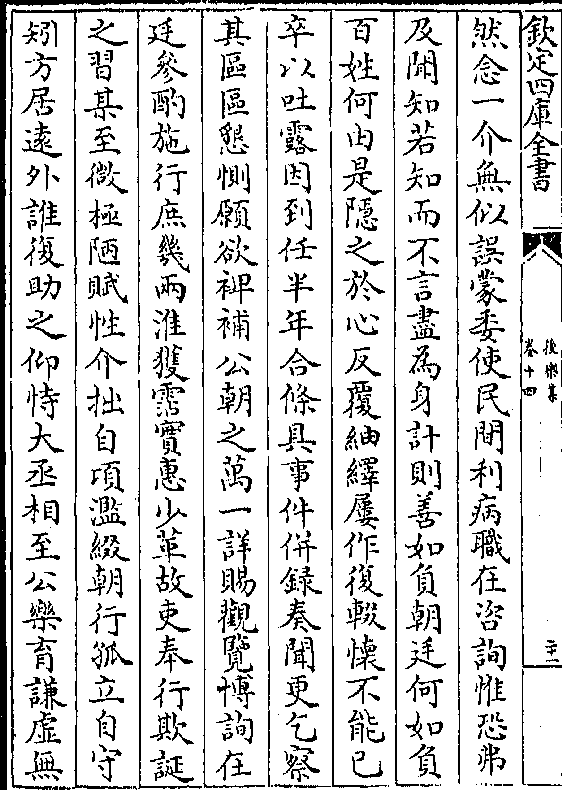 欽定四庫全書
後樂集
卷十四
二十一
然念一介無似誤蒙委使民間利病職在咨詢惟恐弗
及聞知若知而不言盡為身計則善如負朝廷何如負
百姓何由是隱之於心反覆紬繹屢作復輟懐不能已
卒以吐露因到任半年合條具事件併録奏聞更乞察
其區區懇惻願欲裨補公朝之萬一詳賜觀覽博詢在
廷參酌施行庶幾兩淮獲霑實惠少革故吏奉行欺誕
之習某至微極陋賦性介拙自項濫綴朝行孤立自守
矧方居逺外誰復助之仰恃大丞相至公樂育謙虚無